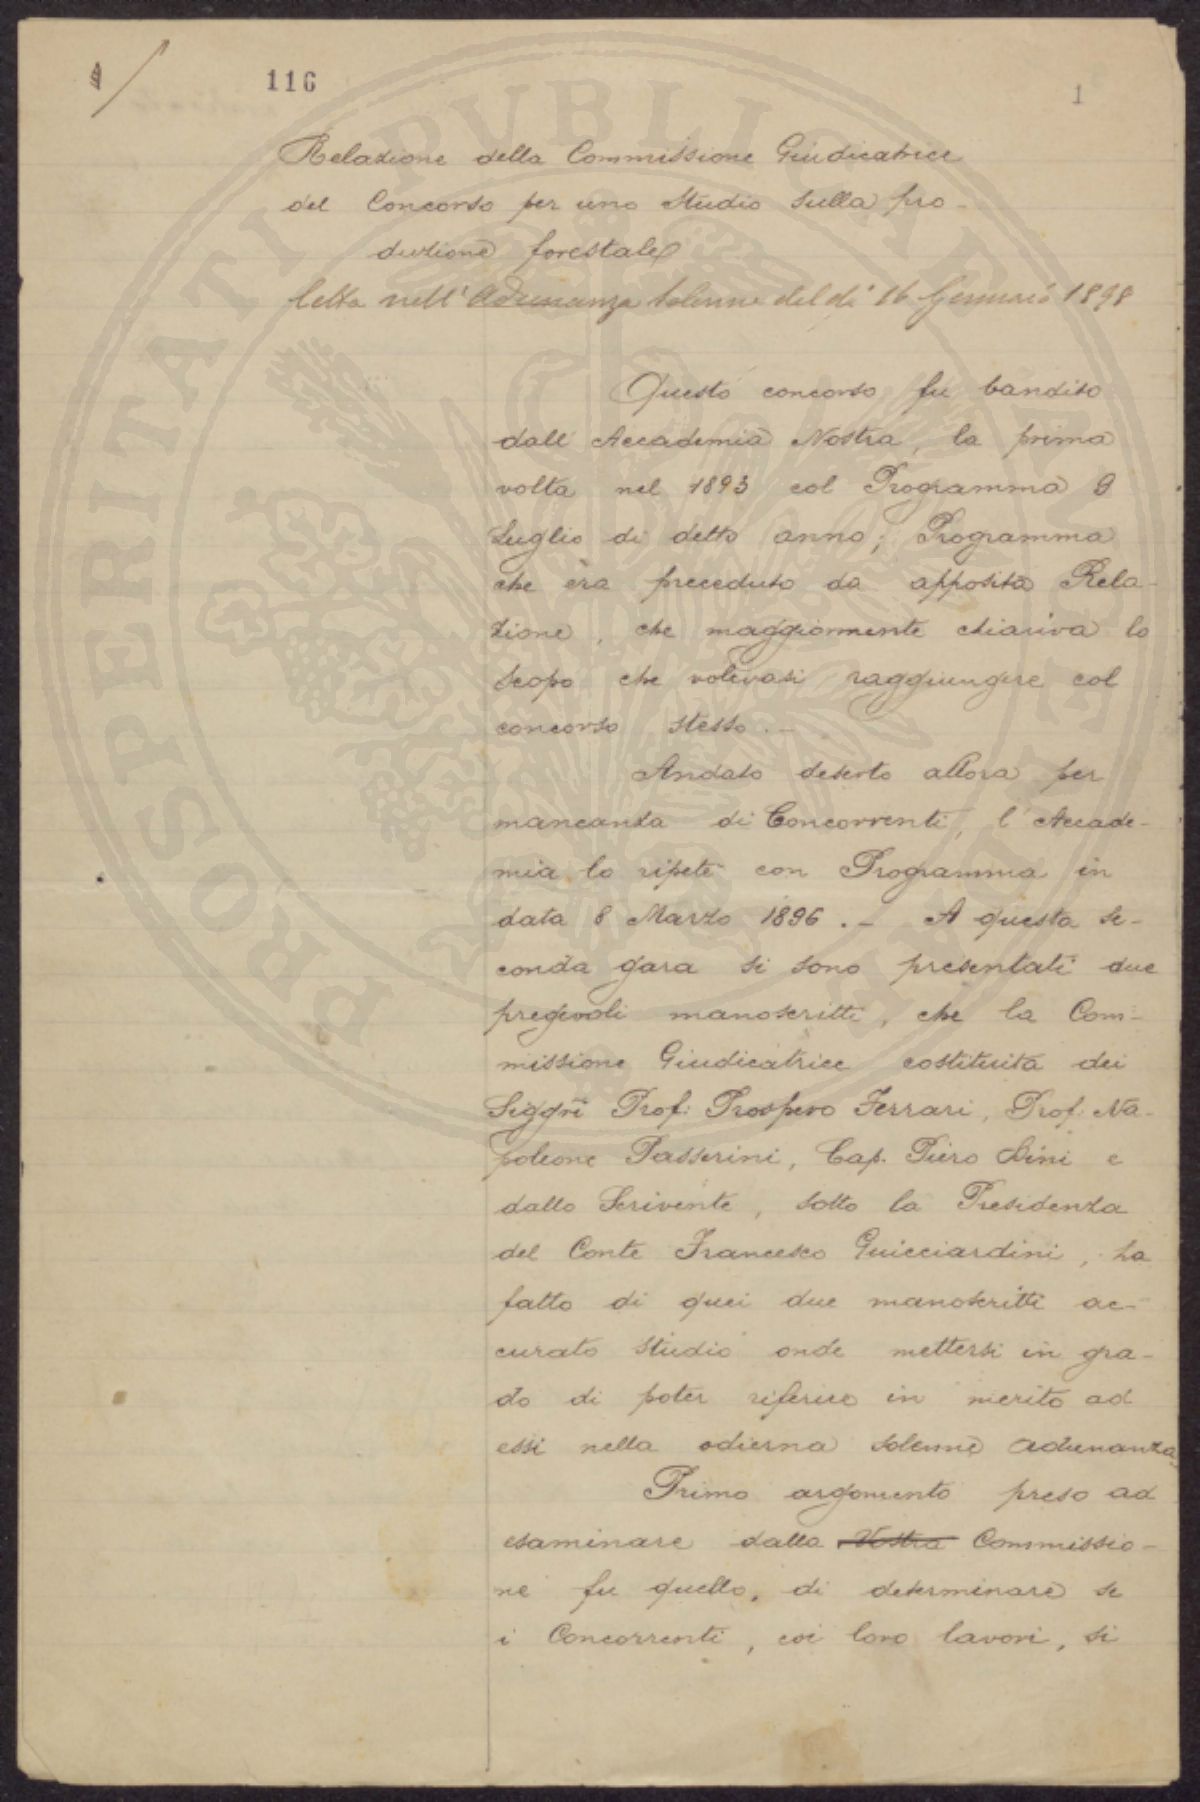 116
1
Relazione della Commissione Giudicatrice
del Concorso per uno Studio sulla pro-
duzione forestale
letta nell'Adunanza solenne del dì 16 Gennaio 1898
Questo concorso fu bandito
dall'Accademia Nostra, la prima
volta nel 1893 col Programma 9
Luglio di detto anno; Programma
che era preceduto da apposita Rela-
zione, che maggiormente chiariva lo
scopo che volevasi raggiungere col
concorso stesso.-
Andato deserto allora per
mancanza di Concorrenti, l'Accade-
mia lo ripetè con Programma in
data 8 Marzo 1896.- A questa se-
conda gara si sono presentati due
pregevoli manoscritti, che la Com-
missione Giudicatrice costituita dei
Siggri Prof: Prospero Ferrari, Prof: Na-
poleone Passerini, Cap. Piero Dini e
dallo Scrivente, sotto la Presidenza
del Conte Francesco Guicciardini, ha
fatto di quei due manoscritti ac-
curato studio onde mettersi in gra-
do di poter riferire in merito ad
essi nella odierna solenne adunanza.
Primo argomento preso ad
esaminare dalla Vostra Commissio-
ne fu quello, di determinare se
i Concorrenti, coi loro lavori, si
PROSPERITATI PUBLICAE AUGENDAE